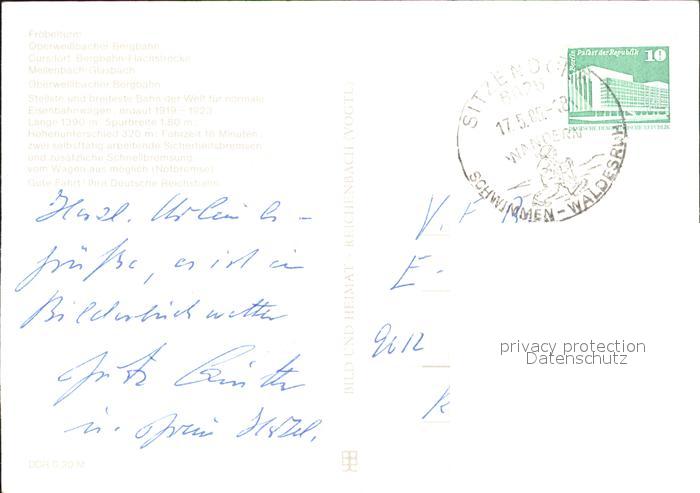 Fröbelturm
Oberweißbacher Bergbahn
Cursdorf: Bergbahn-Flachstrecke
Mellenbach-Glasbach:
Oberweißbacher Bergbahn
Steilste und breiteste Bahn der Welt für normale
Eisenbahnwagen, erbaut 1919 – 1923
Länge 1390 m; Spurbreite 1,80 m;
Höhenunterschied 320 m; Fahrzeit 18 Minuten;
zwei selbsttätig arbeitende Sicherheitsbremsen
und zusätzliche Schnellbremsung
vom Wagen aus möglich (Notbremse)
Gute Fahrt! Ihre Deutsche Reichsbahn
Herzl. Urlaubs-
grüße, es ist ein
Bilderbuchwetter
Fritz Günther
u. Frau
DDR 0,20 M
BILD UND HEIMAT · REICHENBACH (VOGTL)
Berlin Palast der Republik 10
DEUTSCHE DEMOKRATISCHE REPUBLIK
SITZENDORF
17.5.85
WANDERN
SCHWIMMEN - WALDESRUH
V. F
E -
privacy protection
Datenschutz